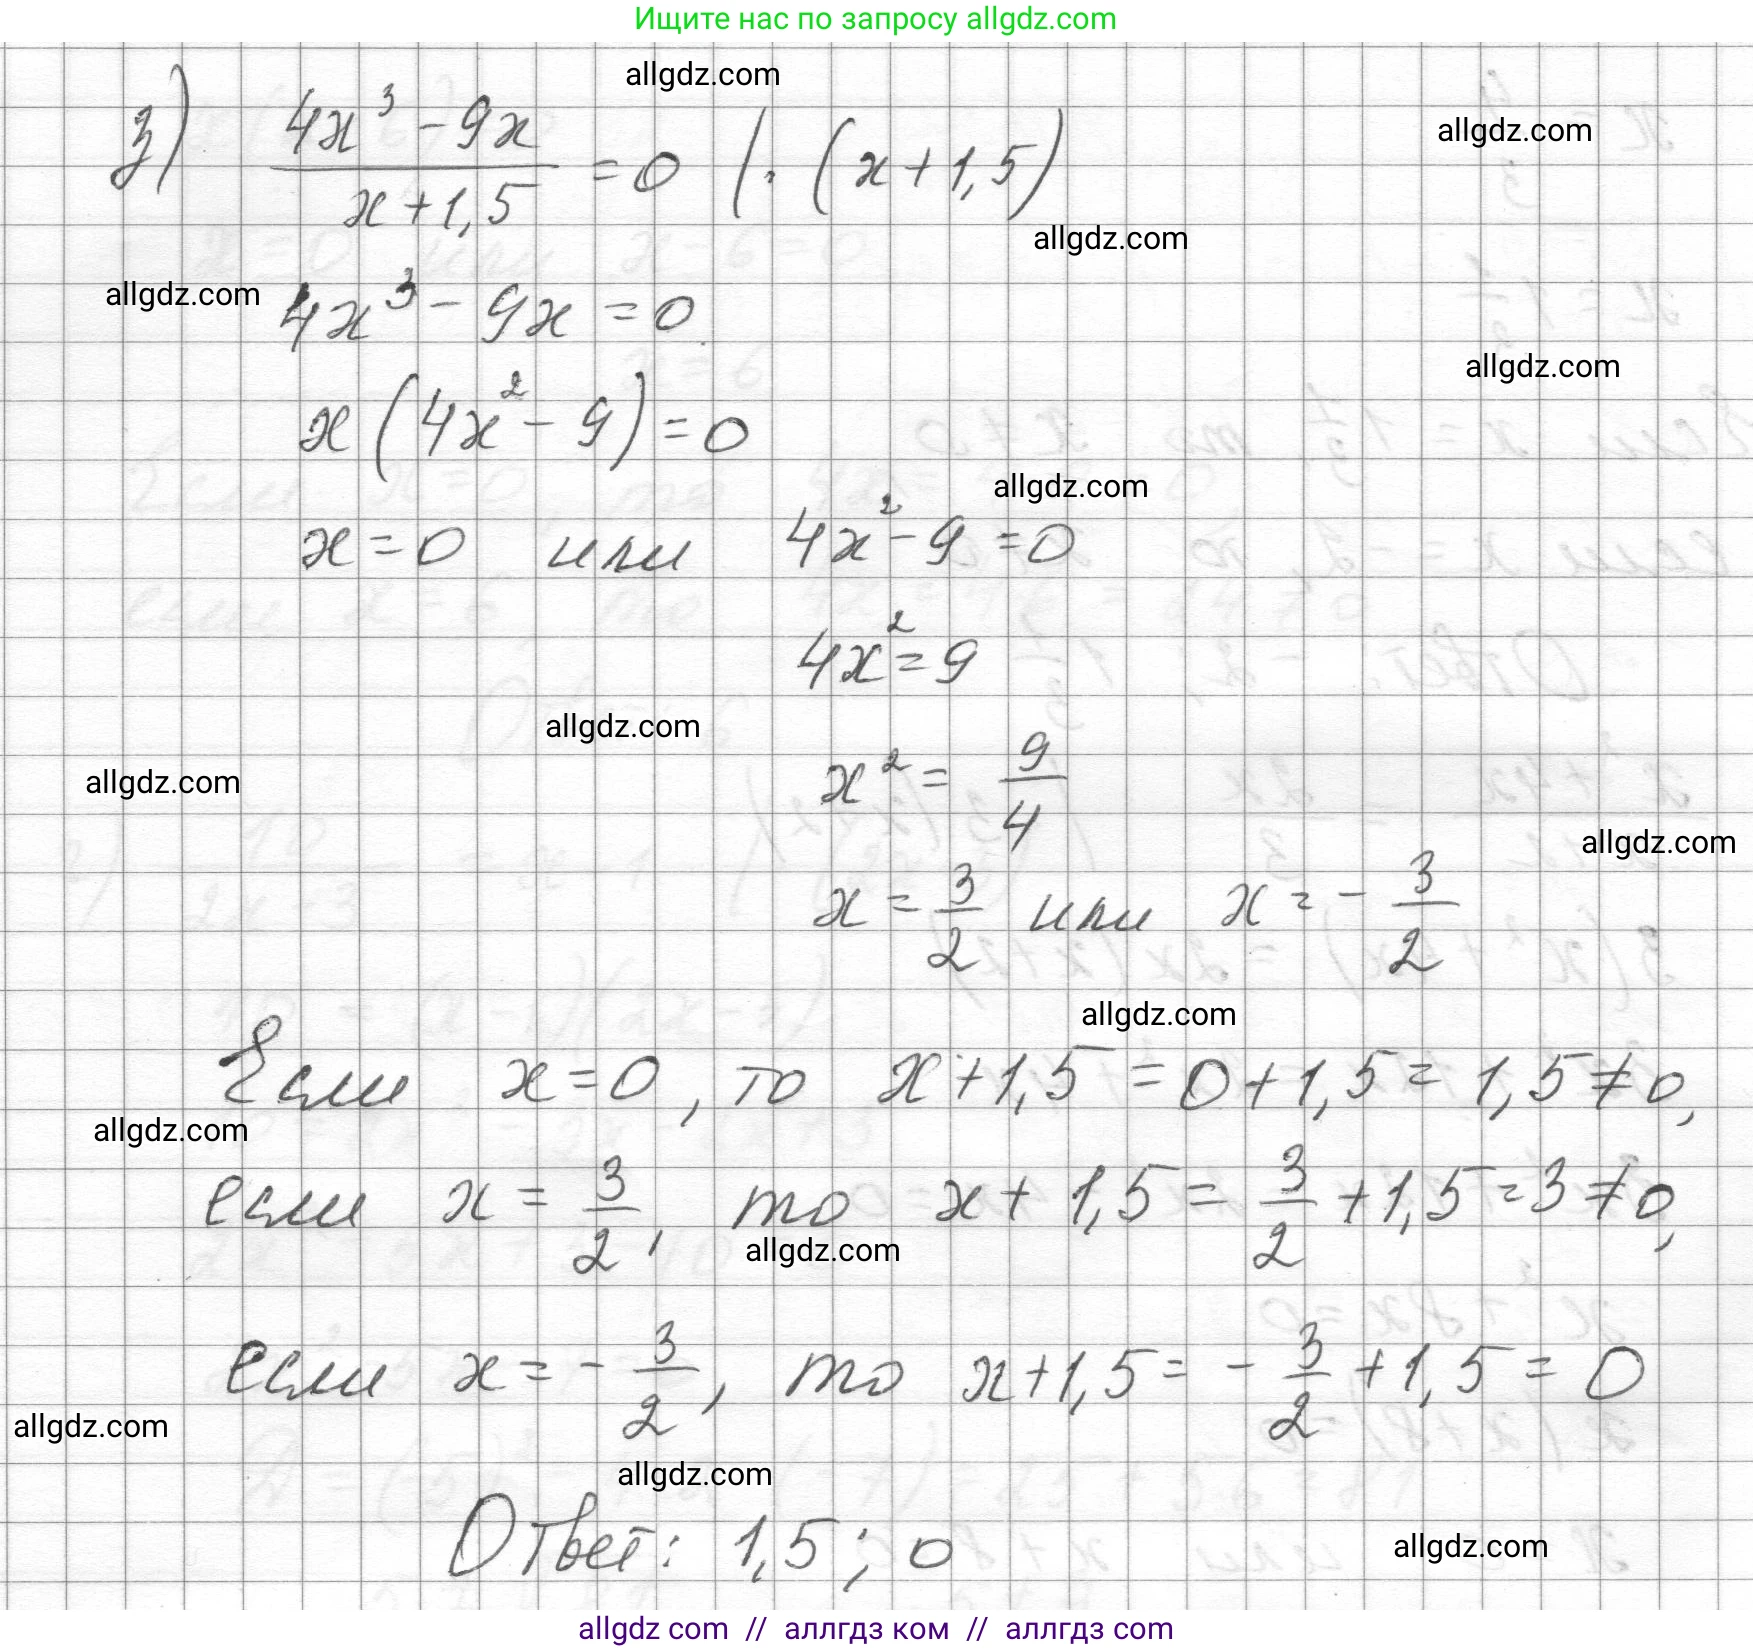 Ищите нас по запросу allgdz.com
allgdz.com
з) (4x³ - 9x)/(x + 1,5) = 0 | · (x + 1,5)
allgdz.com
allgdz.com
allgdz.com
4x³ - 9x = 0
allgdz.com
x(4x² - 9) = 0
allgdz.com
x = 0 или 4x² - 9 = 0
4x² = 9
allgdz.com
allgdz.com
x² = 9/4
allgdz.com
x = 3/2 или x = - 3/2
allgdz.com
Если x = 0, то x + 1,5 = 0 + 1,5 = 1,5 ≠ 0,
allgdz.com
если x = 3/2, то x + 1,5 = 3/2 + 1,5 = 3 ≠ 0,
allgdz.com
если x = - 3/2, то x + 1,5 = - 3/2 + 1,5 = 0
allgdz.com
allgdz.com
Ответ: 1,5; 0
allgdz.com
allgdz com // аллгдз ком // аллгдз com